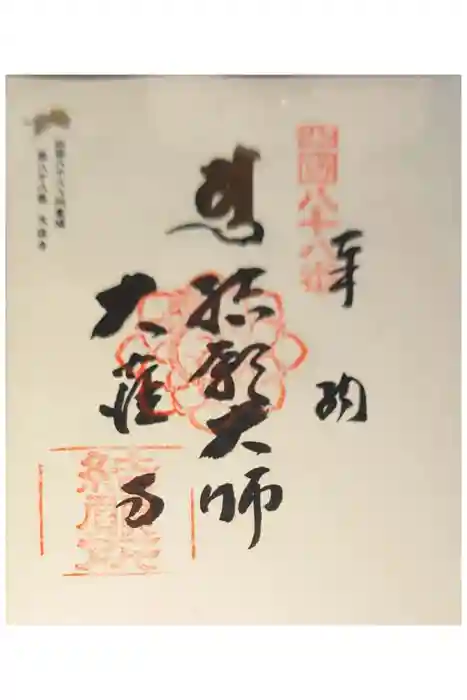 四國八十八番
奉納
結願大師
大窪寺
四国八十八ヶ所霊場
第八十八番 大窪寺